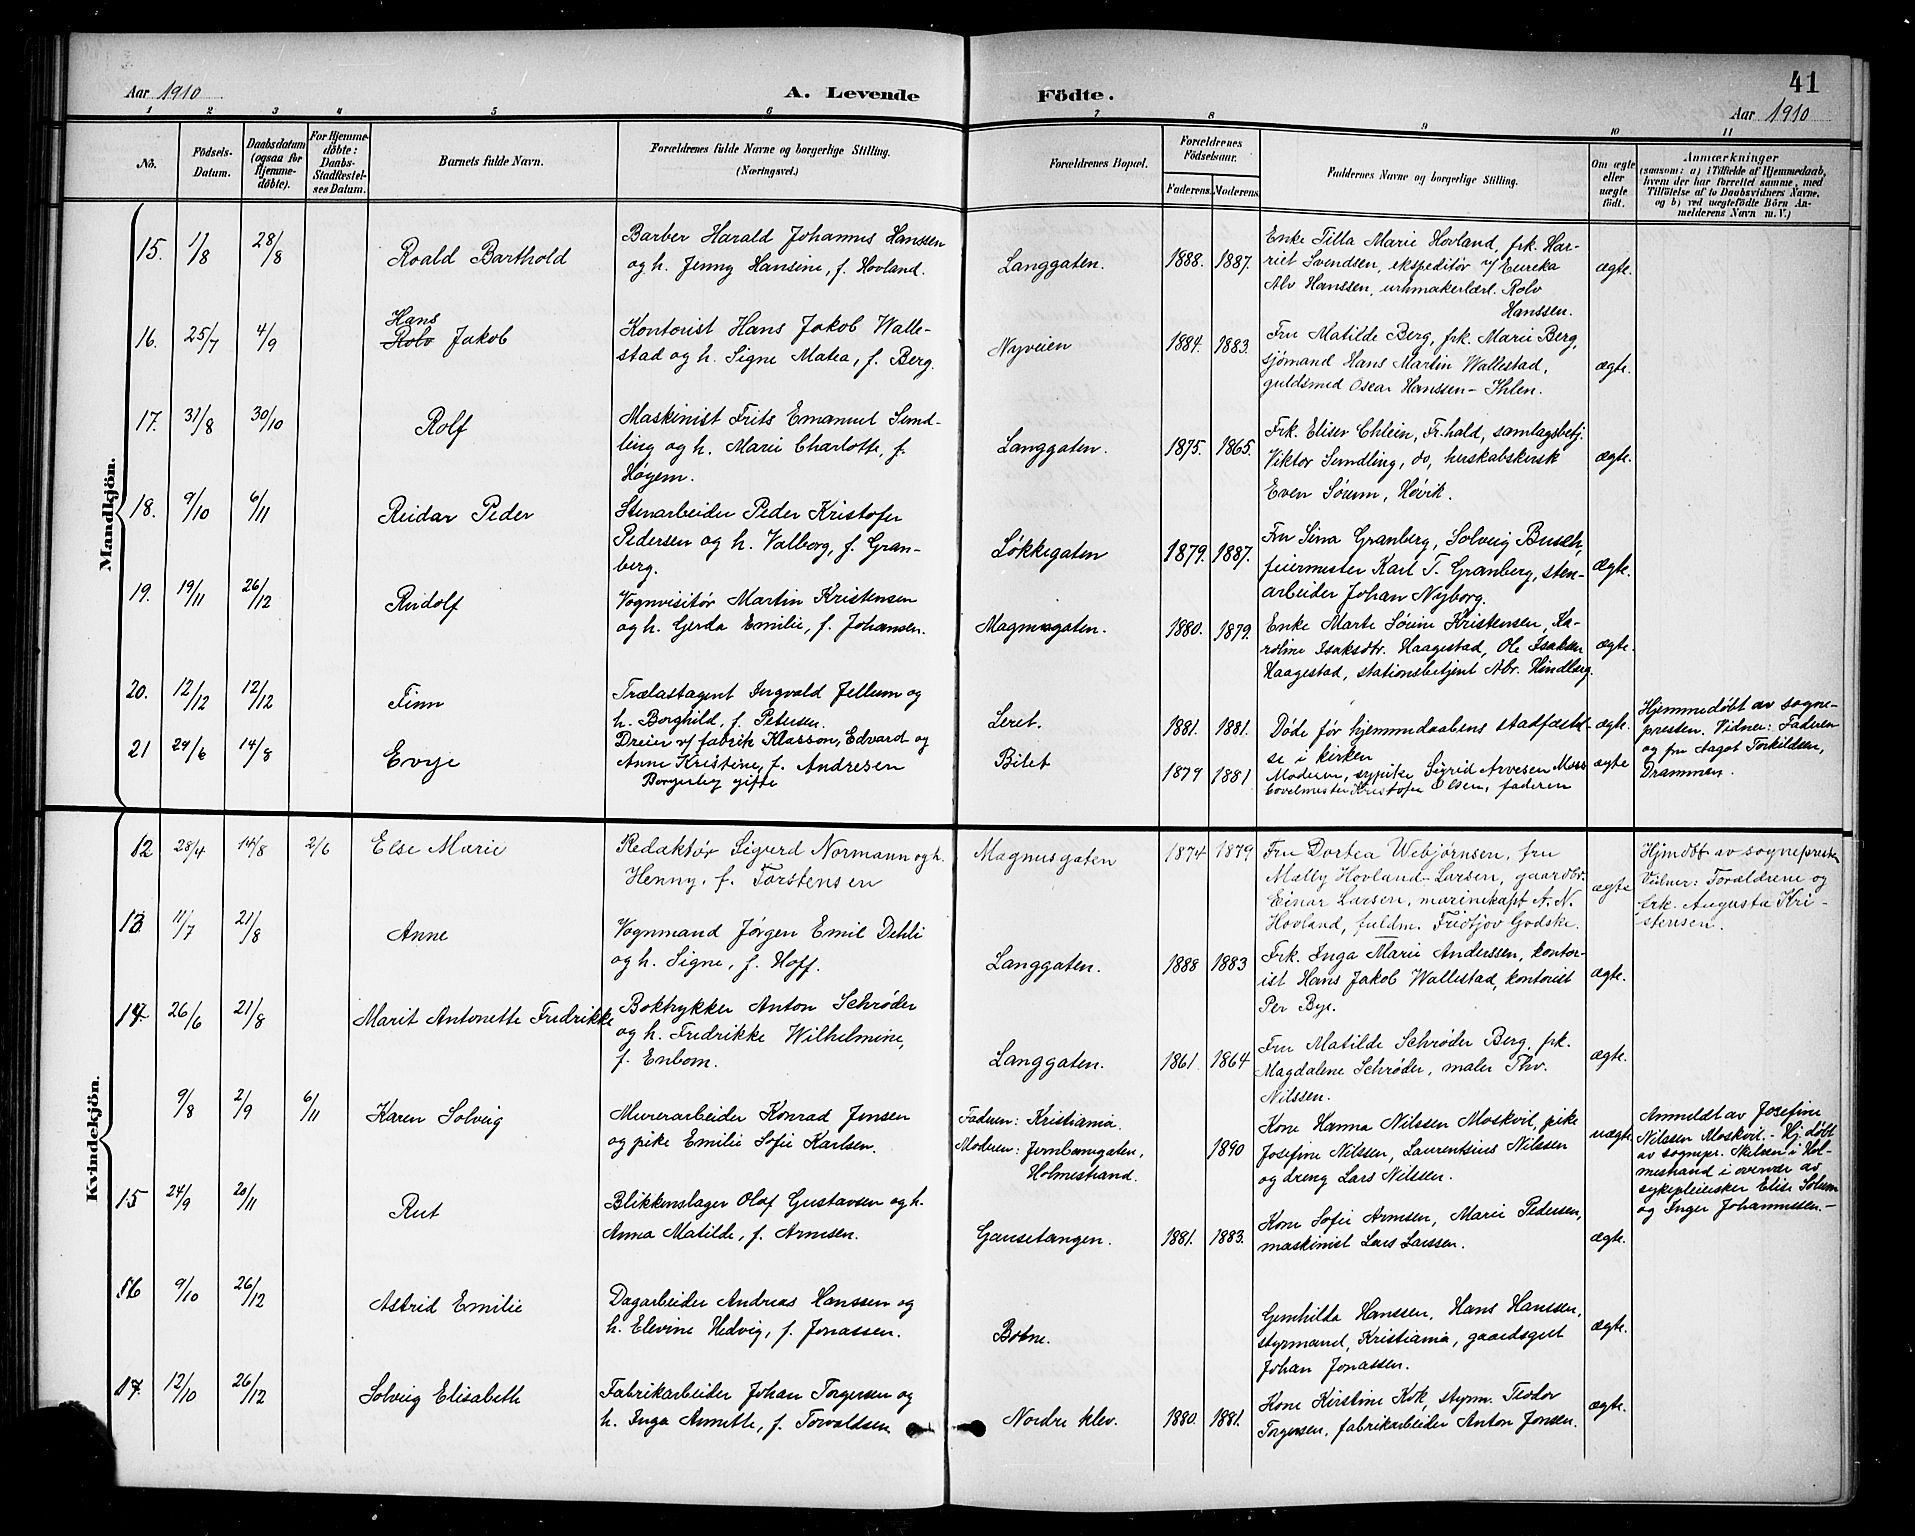 Aar 1910
A. Levende
Födte.
41
Aar 1910
1 2 3 4 5 6 7 8 9 10 11
No.
Födsels-
Datum.
Daabsdatum
(ogsaa for
Hjemme-
döbte).
For Hjemme-
döbte:
Daabs-
Stadfestel-
ses Datum.
Barnets fulde Navn.
Forældrenes fulde Navne og borgerlige Stilling.
(Næringsvei.)
Forældrenes Bopæl.
Forældrenes
Födselsaar.
Faderens. Moderens.
Faddernes Navne og borgerlige Stilling.
Om ægte
eller
uægte
födt.
Anmærkninger
(saasom: a) i Tilfælde af Hjemmedaab,
hvem der har forrettet samme, med
Tilföielse af to Daabsvidners Navne,
og b) ved uægtefödte Börn An-
melderens Navn m. V.)
Mandkjön.
15. 1/8 28/8
Roald Barthold
Barber Harald Johannes Hanssen
og h. Jenny Hansine, f. Hovland.
Langgaten.
1888. 1887.
Enke Tilla Marie Hovland, frk. Har-
riet Svendsen, ekspeditør v/ Eureka
Alv Hanssen, urhmakerlærl. Rolv
Hanssen.
ægte.
16. 25/7 4/9
Hans
Rolv Jakob
Kontorist Hans Jakob Walle-
stad og h. Signe Matea, f. Berg.
Nyveien
1884. 1883.
Fru Matilde Berg, frk. Marie Berg,
sjømand Hans Martin Wallestad,
guldsmed Oscar Hanssen-Ihlen.
ægte.
17. 31/8 30/10
Rolf
Maskinist Frits Emanuel Sund-
ling og h. Marie Charlotte, f.
Høyem.
Langgaten.
1875. 1865.
Frk. Eliser Chlein, Fr.hald, samlagsbetj.
Viktor Sundling, do, herskabskusk
Even Sørum, Høvik.
ægte.
18. 9/10 6/11
Reidar Peder
Stenarbeider Peder Kristofer
Pedersen og h. Valborg, f. Gran-
berg.
Løkkegaten
1879. 1887.
Fru Sina Granberg, Solveig Busch,
feiermester Karl T. Granberg, sten-
arbeider Johan Nyborg.
ægte.
19. 19/11 26/12
Rudolf
Vognvisitør Martin Kristensen
og h. Gerda Emilie, f. Johansen.
Magnusgaten.
1880. 1879.
Enke Marte Sørine Kristensen, Ka-
roline Isaksdtr. Haagestad, Ole Isaksen
Haagestad, stationsbetjent Abr. Hindberg.
ægte.
20. 12/12 12/12
Finn
Trælastagent Ingvald Jellum og
h. Borghild, f. Petersen.
Leret.
1881. 1881.
Døde før hjemmedaabens stadfæstel-
se i kirken
ægte.
Hjemmedøbt av sogne-
presten. Vidner: Faderen
og fru Aagot Torkildsen,
Drammen.
21 29/6 14/8
Evje
Dreier v/ fabrik Klasson, Edvard og
Anne Kristine, f. Andresen
Borgerleg gifte
Bilet
1879 1881
Moderen, sypike Sigrid Arvesen Moss
Hovelmester Kristofer Olsen, faderen
ægte
Kvindekjön.
12 28/4 14/8 2/6
Else Marie
Redaktør Sigurd Normann og h.
Henny, f. Torstensen
Magnusgaten
1874 1879
Fru Dortea Webjørnsen, fru
Mally Hovland-Larsen, gaardbr.
Einar Larsen, marinekapt A. N.
Hovland, fuldm. Fridtjov Godske.
ægte
Hjmdøt av sognepresten
Vidner: Forældrene og
frk. Augusta Kri-
stensen.
13 11/7 21/8
Anne
Vognmand Jørgen Emil Dehli
og h. Signe, f. Hoff.
Langgaten.
1888 1883
Frk. Inga Marie Anderssen, kontor-
ist Hans Jakob Wallestad, kontorist
Per Bye.
ægte.
14. 26/6 21/8
Marit Antonette Fredrikke
Boktrykker Anton Schrøder
og h. Fredrikke Wilhelmine,
f. Enbom.
Langgaten.
1861. 1864
Fru Matilde Schrøder Berg, frk.
Magdalene Schrøder, maler Thv.
Nilssen.
ægte.
9/8 2/9 6/11
Karen Solveig
Murerarbeider Konrad Jensen
og pike Emilie Sofie Karlsen.
Faderen: Kristiania.
Moderen: Jernbanegaten,
Holmestrand.
1890
Kone Hanna Nilssen Moskvil, pike
Josefine Nilssen, Laurentsius Nilssen
og dreng Lars Nilssen.
uægte
Anmeldt av Josefine
Nilssen Moskvil.- Hj.døbt
av sognepr. Nilsen i Hol-
mestrand i overvær av
sykepleiersker Elise Solum
og Inger Johannessen.-
15 24/9 20/11
Rut
Blikkenslager Olaf Gustavsen og h.
Anna Matilde, f. Arnesen.
Gausetangen.
1881. 1883.
Kone Sofie Arnesen, Marie Pedersen,
maskinist Lars Larssen.
ægte.
16 9/10 26/12
Astrid Emilie
Dagarbeider Andreas Hanssen og
h. Elevine Hedvig, f. Jonassen.
Botne.
Gunhilda Hanssen, Hans Hanssen,
styrmand, Kristiania, gaardsgut
Johan Jonassen.
ægte.
17. 12/10 26/12
Solveig Elisabeth
Fabrikarbeider Johan Torgersen og
h. Inga Annette, f. Torvaldsen
Nordre klev.
1880. 1881.
Kone Kirstine Kok, styrm. Teodor
Torgersen, fabrikarbeider Anton Jonsen.
ægte.